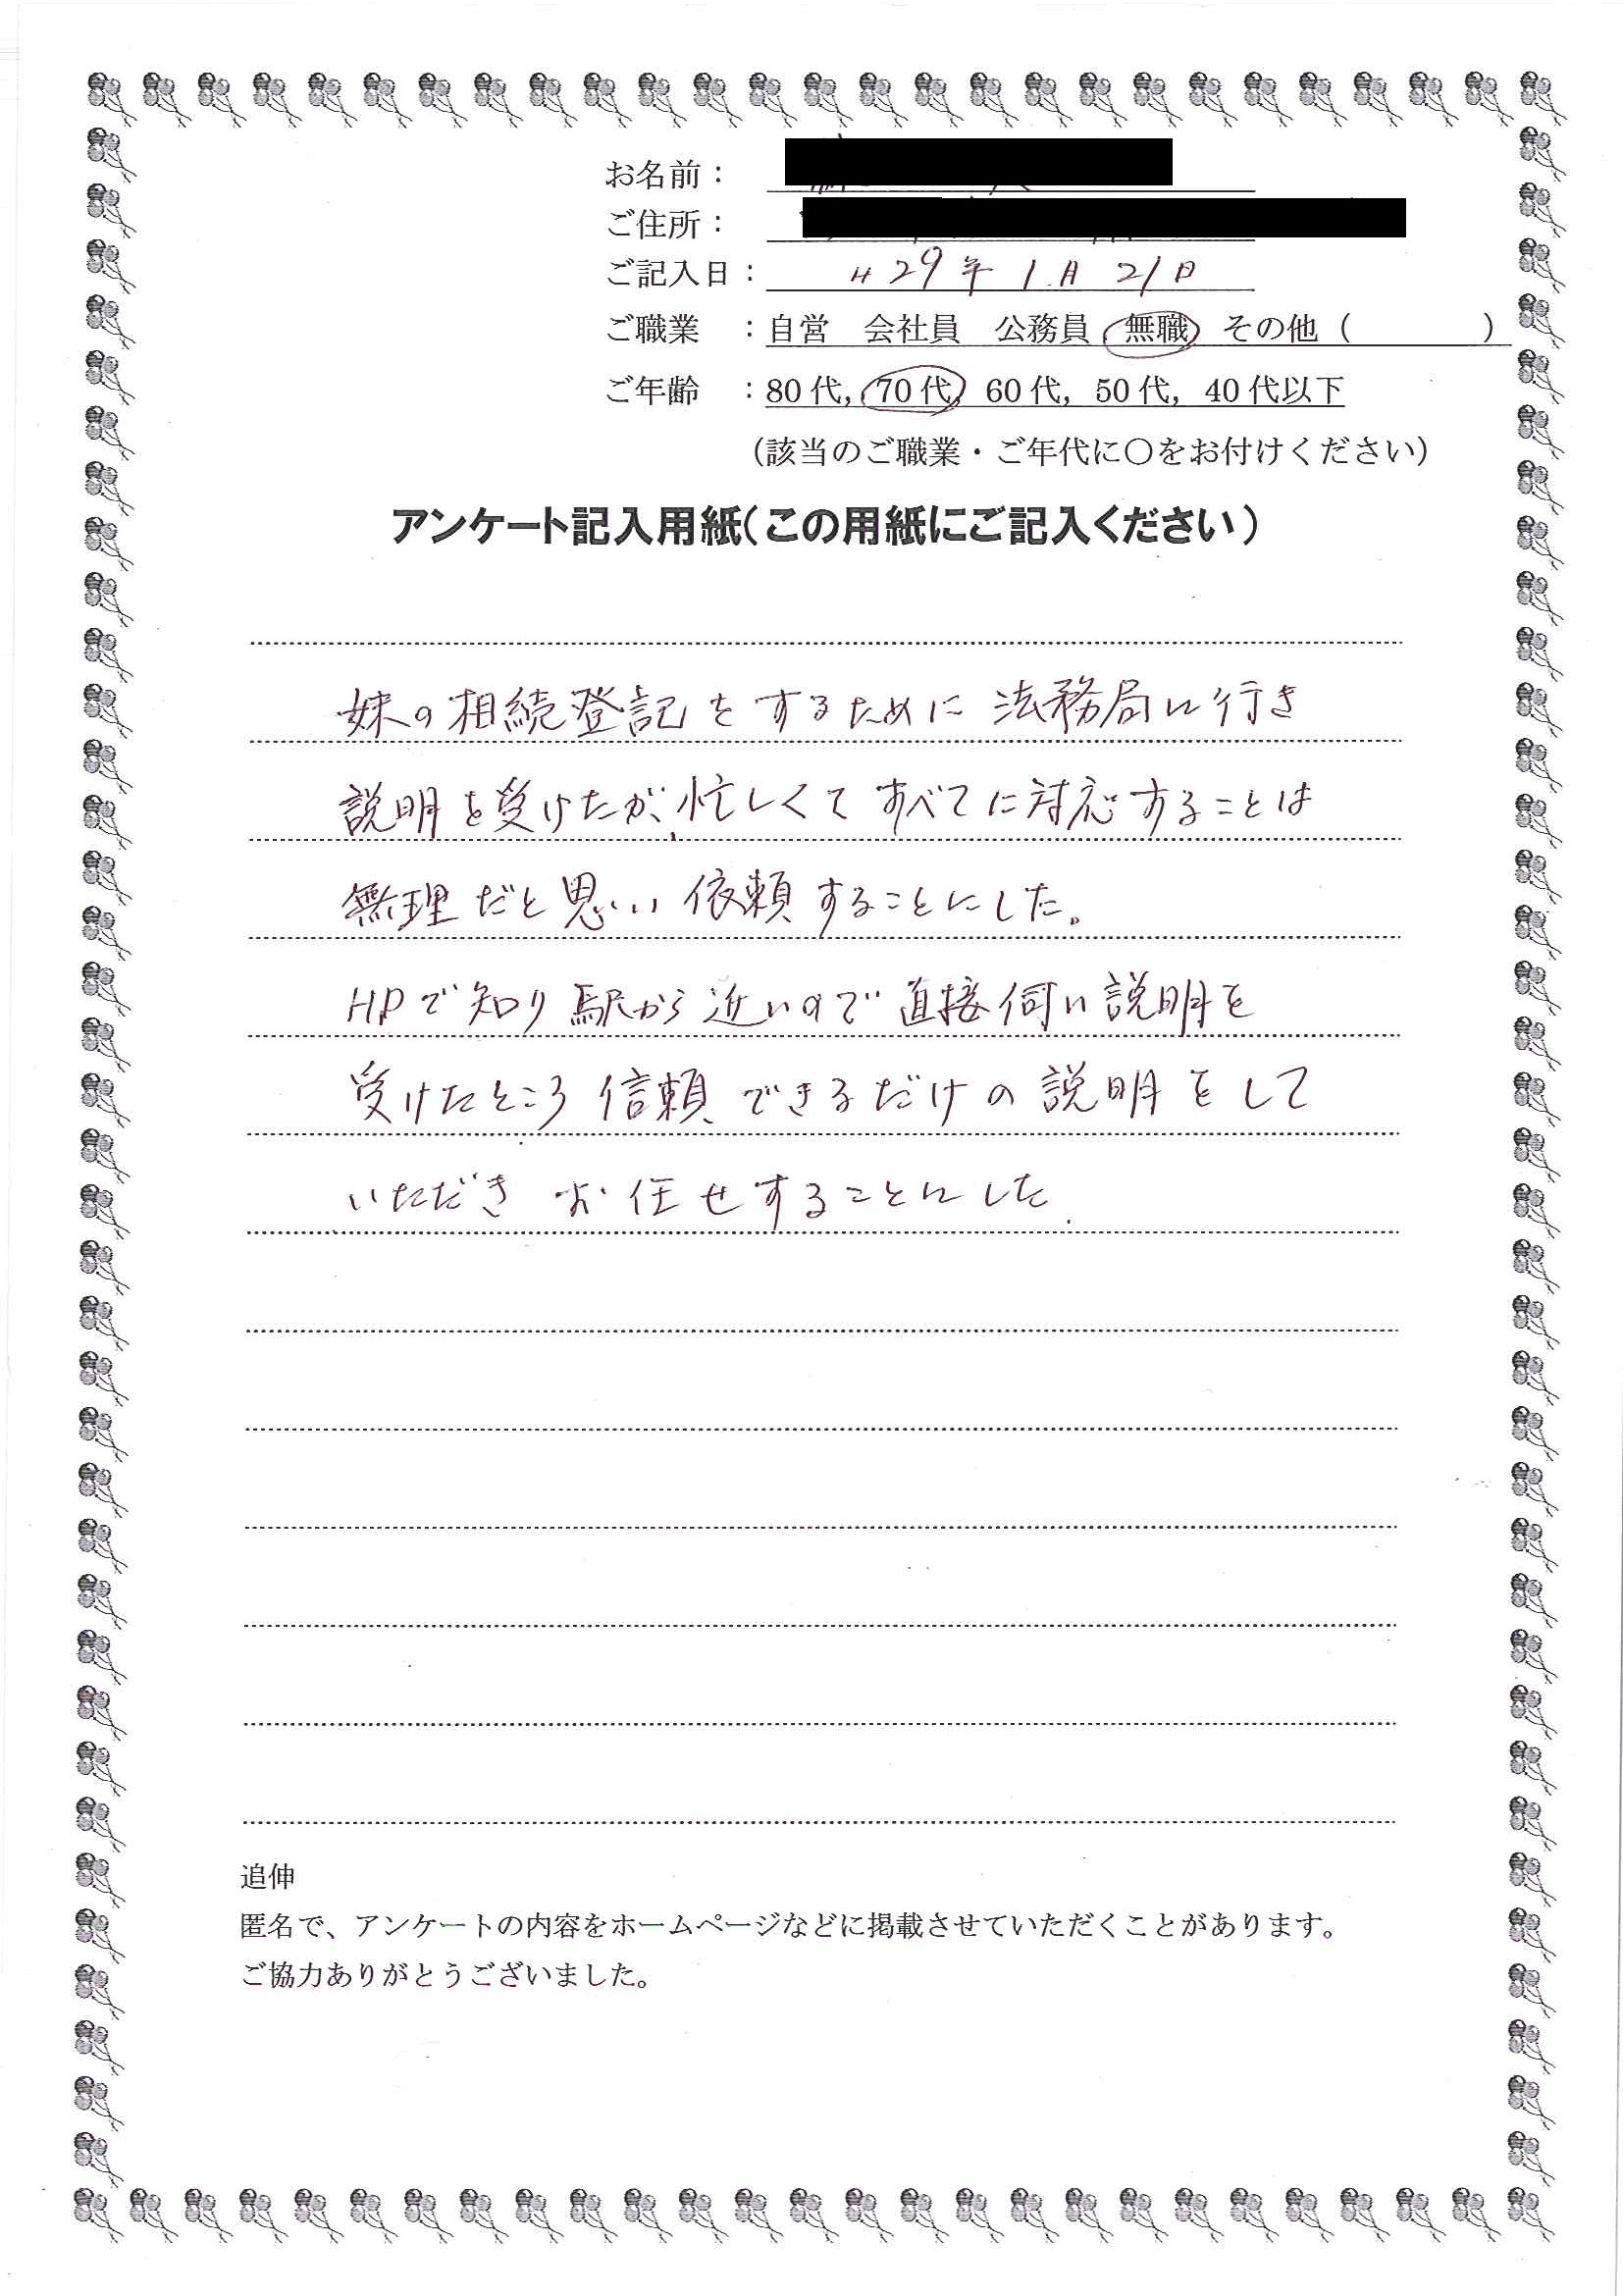 お名前：
ご住所：
ご記入日： H29年1月21日
ご職業 ：自営 会社員 公務員 無職 その他（ ）
ご年齢 ：80代，70代，60代，50代，40代以下
（該当のご職業・ご年代に〇をお付けください）
アンケート記入用紙（この用紙にご記入ください）
妹の相続登記をするために法務局に行き
説明を受けたが、忙しくてすべてに対応することは
無理だと思い依頼することにした。
HPで知り駅から近いので直接伺い説明を
受けたところ信頼できるだけの説明をして
いただきお任せすることにした.
追伸
匿名で、アンケートの内容をホームページなどに掲載させていただくことがあります。
ご協力ありがとうございました。